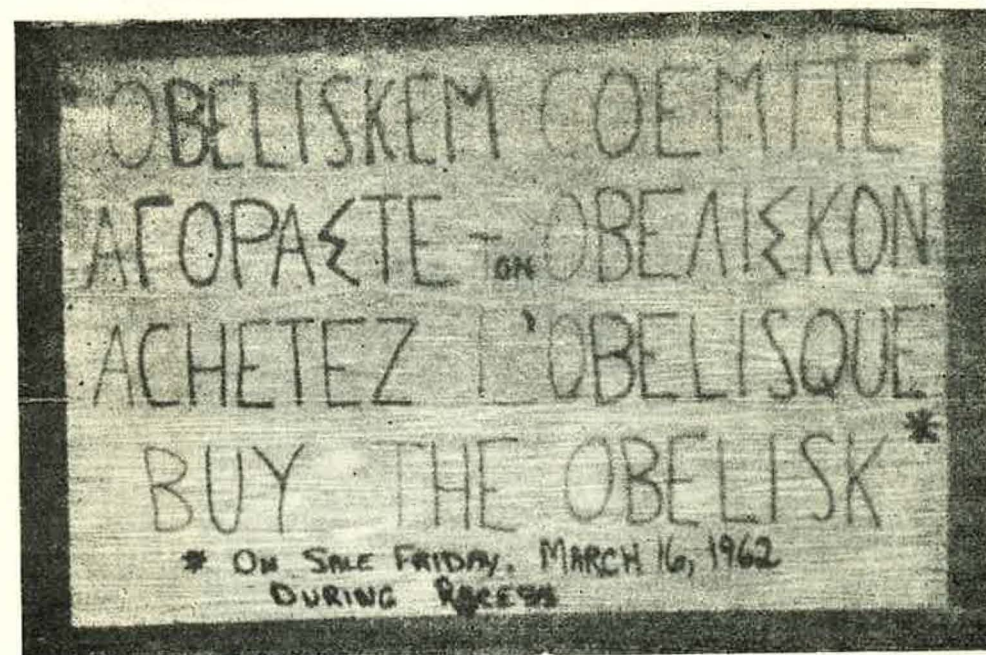 OBELISKEM COEMITE
ΑΓΟΡΑΣΤΕ ΤΟΝ ΟΒΕΛΙΣΚΟΝ
ACHETEZ L'OBELISQUE
BUY THE OBELISK*
* ON SALE FRIDAY, MARCH 16, 1962
DURING RECESS